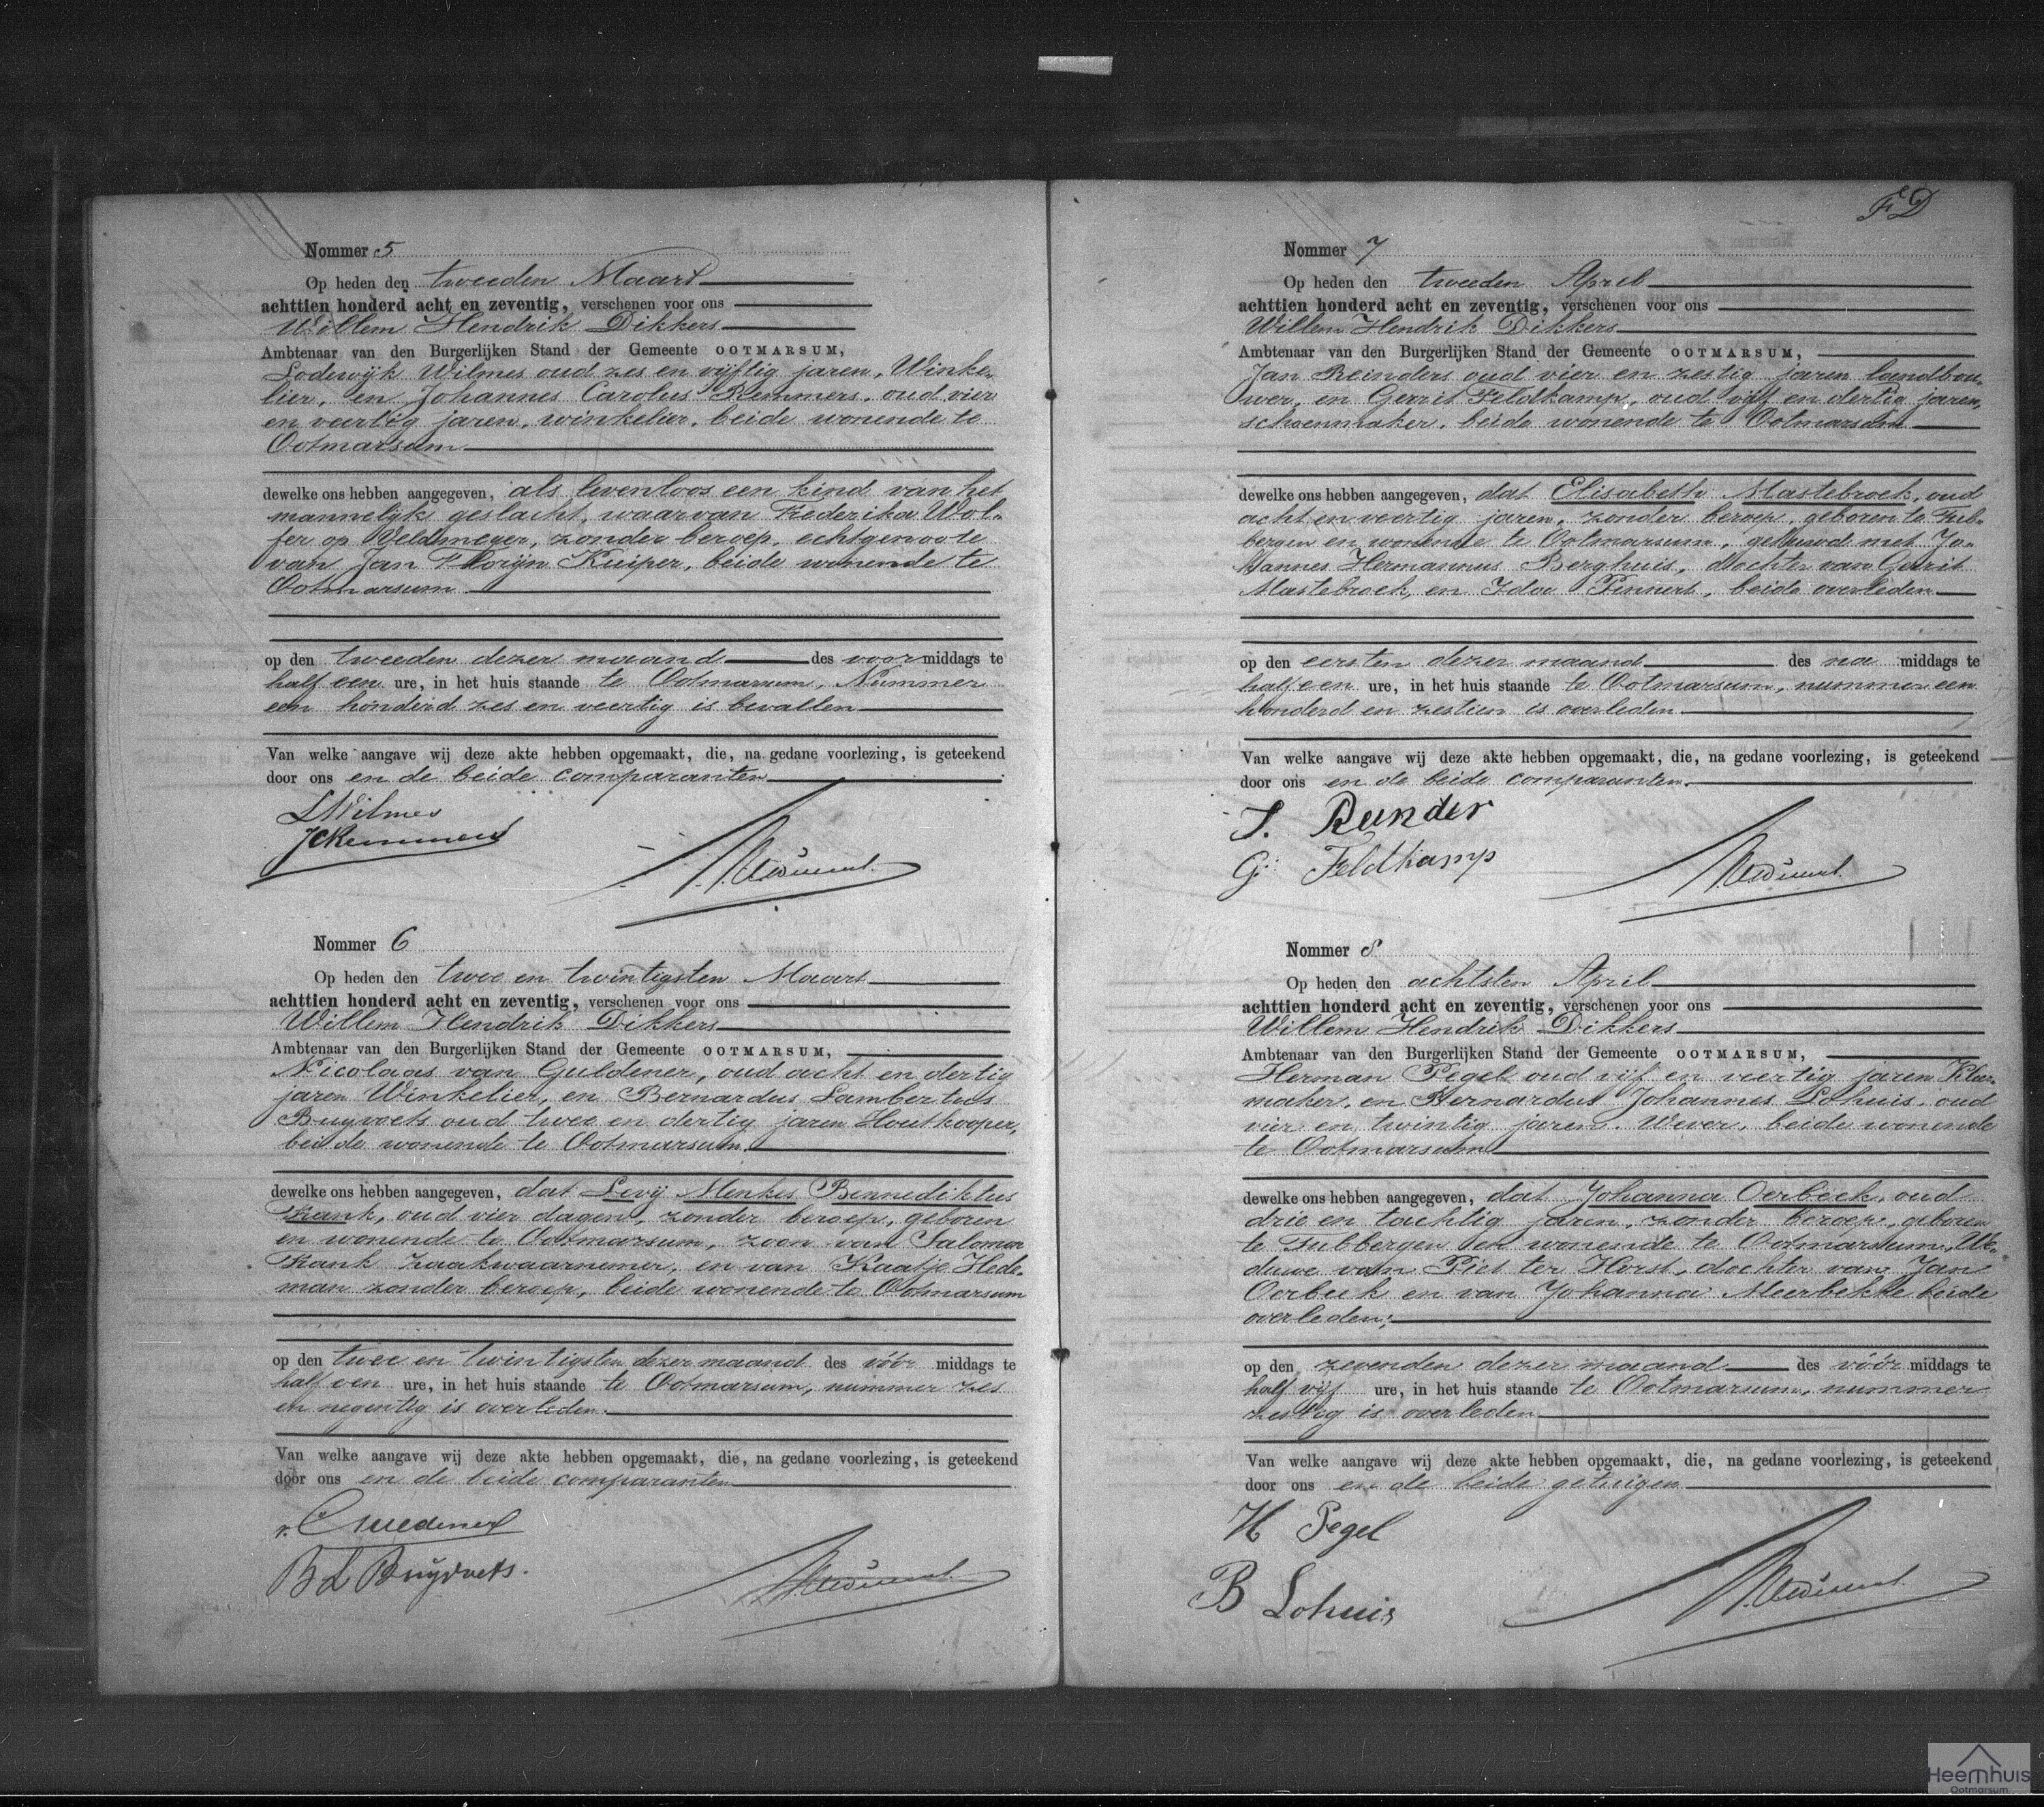 Nommer 5
Op heden den tweeden Maart
achttien honderd acht en zeventig, verschenen voor ons
Willem Hendrik Dikkers
Ambtenaar van den Burgerlijken Stand der Gemeente OOTMARSUM,
Lodewijk Wilmes oud zes en vijftig jaren, Winke-
lier, en Johannes Carolus Remmers, oud vier
en veertig jaren, winkelier, beide wonende te
Ootmarsum
dewelke ons hebben aangegeven, als levenloos een kind van het
mannelijk geslacht, waarvan Frederika Wol-
fer op Veldmeyer, zonder beroep, echtgenoote
van Jan Florijn Kuiper, beide wonende te
Ootmarsum
op den tweeden dezer maand des voor middags te
half een ure, in het huis staande te Ootmarsum, Nummer
een honderd zes en veertig is bevallen
Van welke aangave wij deze akte hebben opgemaakt, die, na gedane voorlezing, is geteekend
door ons en de beide comparanten
LWilmes
JCRemmers
Nommer 6
Op heden den twee en twintigsten Maart
achttien honderd acht en zeventig, verschenen voor ons
Willem Hendrik Dikkers
Ambtenaar van den Burgerlijken Stand der Gemeente OOTMARSUM,
Nicolaas van Guldener, oud acht en dertig
jaren Winkelier, en Bernardus Lambertus
Buyvoets oud twee en dertig jaren Houtkooper,
beide wonende te Ootmarsum.
dewelke ons hebben aangegeven, dat Levij Menkes Bennediktus
Frank, oud vier dagen, zonder beroep, geboren
en wonende te Ootmarsum, zoon van Salomon
Frank zaakwaarnemer, en van Kaatje Hede-
man zonder beroep, beide wonende te Ootmarsum
op den twee en twintigsten dezer maand des vóór middags te
half een ure, in het huis staande te Ootmarsum, nummer zes
en negentig is overleden.
Van welke aangave wij deze akte hebben opgemaakt, die, na gedane voorlezing, is geteekend
door ons en de beide comparanten
B L Buijvoets.
FD
Nommer 7
Op heden den tweeden April
achttien honderd acht en zeventig, verschenen voor ons
Willem Hendrik Dikkers
Ambtenaar van den Burgerlijken Stand der Gemeente OOTMARSUM,
Jan Reinders oud vier en zestig jaren landbou-
wer, en Gerrit Feldkamp, oud vijf en dertig jaren,
schoenmaker, beide wonende te Ootmarsum
dewelke ons hebben aangegeven, dat Elisabeth Mastebroek, oud
acht en veertig jaren, zonder beroep, geboren te Tub-
bergen en wonende te Ootmarsum, gehuwd met Jo-
hannes Hermannus Berghuis, dochter van Gerrit
Mastebroek, en Ida Pinners, beide overleden
op den eersten dezer maand des na middags te
half een ure, in het huis staande te Ootmarsum, nummer een
honderd en zestien is overleden
Van welke aangave wij deze akte hebben opgemaakt, die, na gedane voorlezing, is geteekend
door ons en de beide comparanten.
J. Runder
G Feldkamp
Nommer 8
Op heden den achtsten April
achttien honderd acht en zeventig, verschenen voor ons
Willem Hendrik Dikkers
Ambtenaar van den Burgerlijken Stand der Gemeente OOTMARSUM,
Herman Pegel oud vijf en veertig jaren Kleer-
maker, en Bernardus Johannes Lohuis, oud
vier en twintig jaren, Wever, beide wonende
te Ootmarsum
dewelke ons hebben aangegeven, dat Johanna Oerbeek, oud
drie en tachtig jaren, zonder beroep, geboren
te Tubbergen en wonende te Ootmarsum, We-
duwe van Piet ter Horst, dochter van Jan
Oerbeek en van Johanna Meerbekke beide
overleden;
op den zevenden dezer maand des vóór middags te
half vijf ure, in het huis staande te Ootmarsum, nummer
zestig is overleden
Van welke aangave wij deze akte hebben opgemaakt, die, na gedane voorlezing, is geteekend
door ons en de beide getuigen
H Pegel
B Lohuis
Heemhuis
Ootmarsum